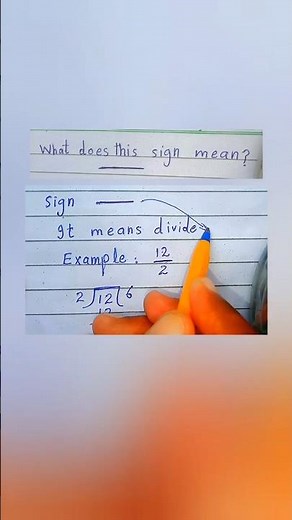 What does this sign mean?
Sign —
It means divide
Example : 12/2
2)12(6
12